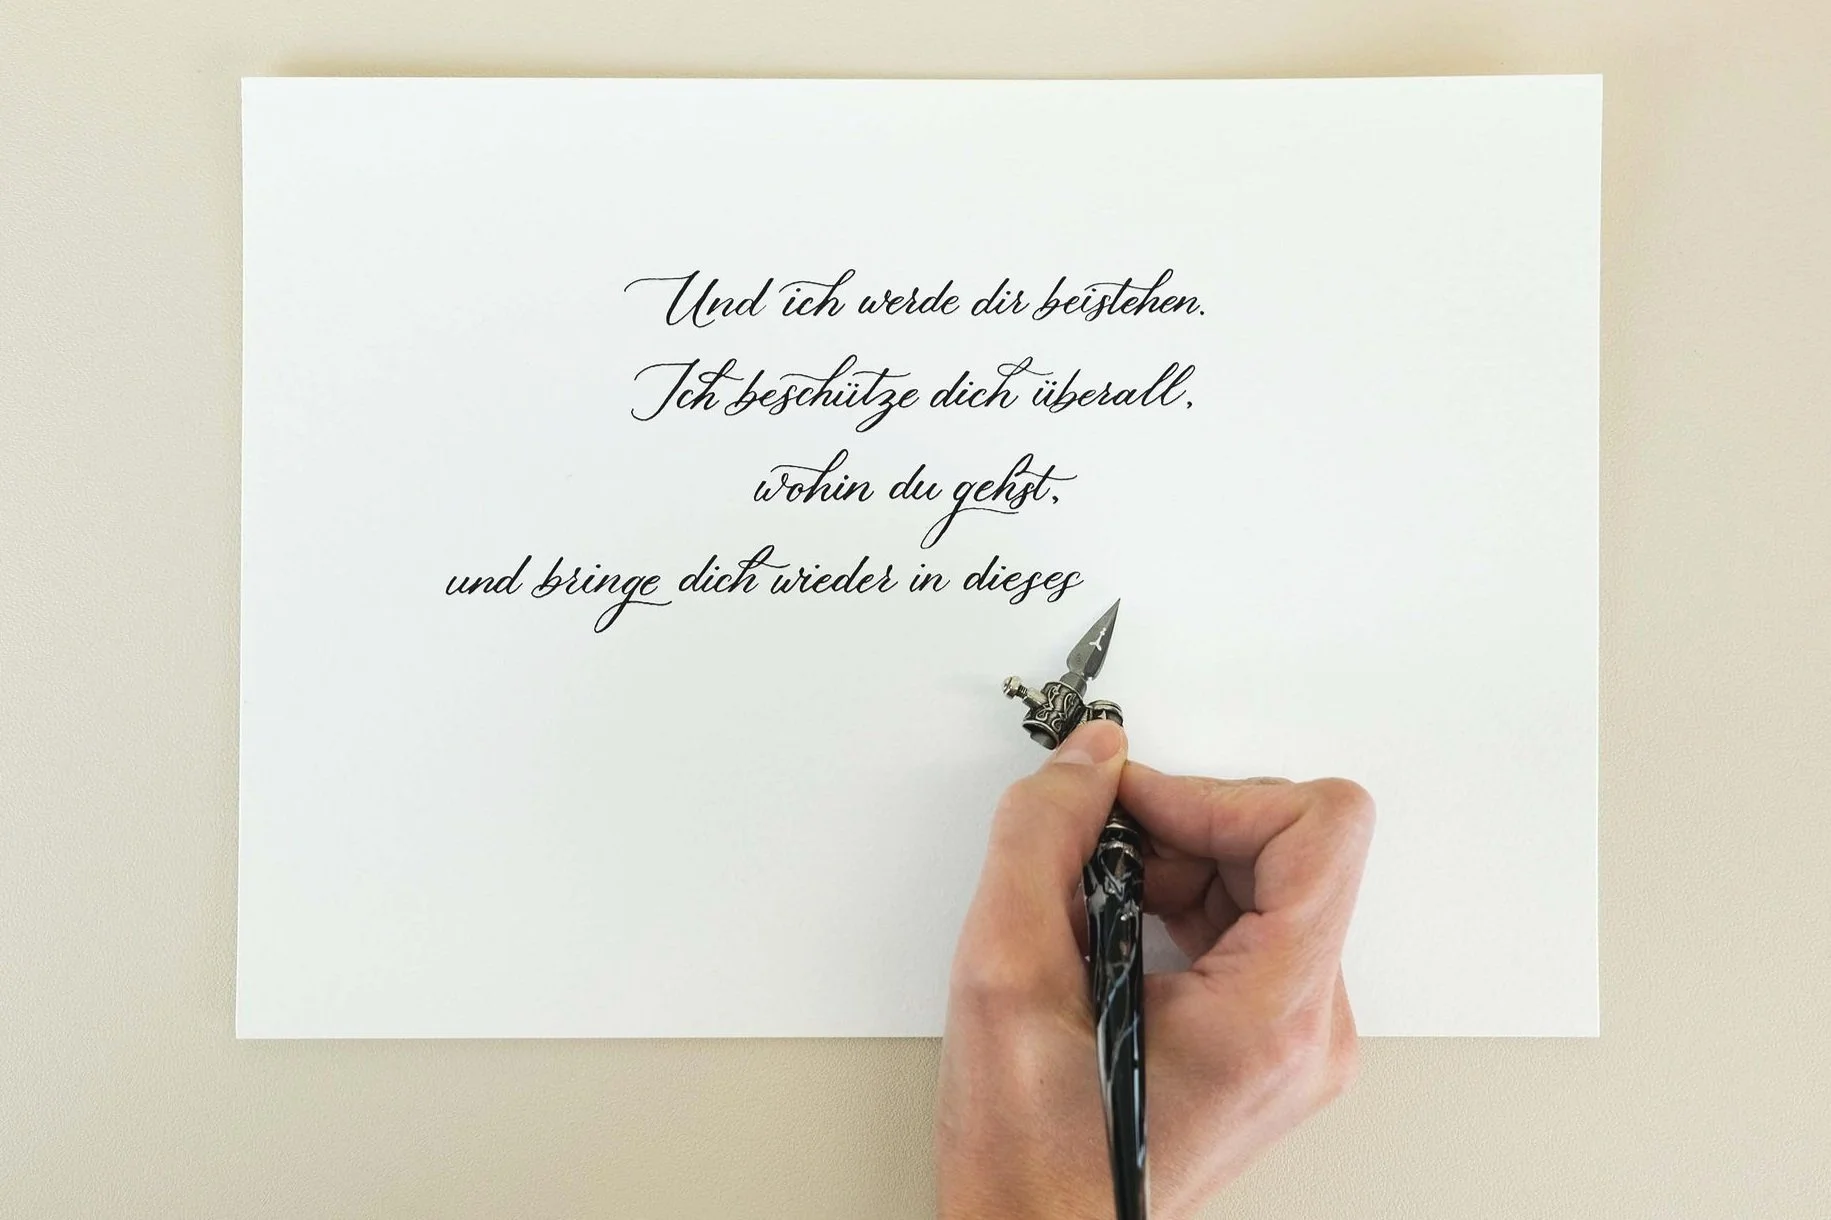 Und ich werde dir beistehen.
Ich beschütze dich überall,
wohin du gehst,
und bringe dich wieder in dieses